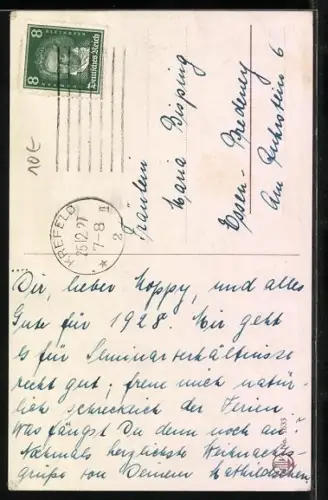 8 BEETHOVEN 8
Deutsches Reich
10€
KREFELD
25.12.27
7-8 N
* 2
Fräulein
Maria Bisping
Essen-Bredeney
Am Ruhrstein 6
....Dir, lieber Moppy, und alles
Gute für 1928. Mir geht
es für Seminarverhältnisse
recht gut; freue mich natür-
lich schrecklich der Ferien
Was fängst Du denn noch an?
Nochmals herzlichste Weihnachts-
grüße von Deinem Mathildchen